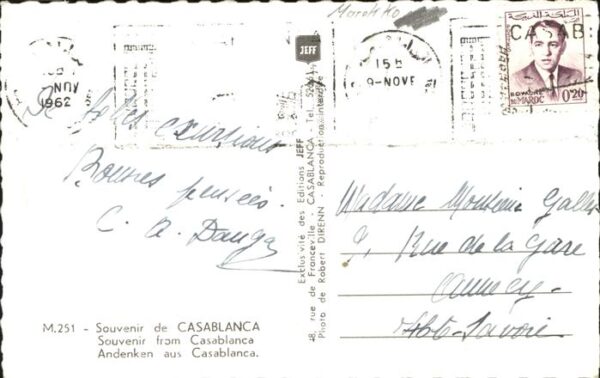 Marokko
JEFF
15H
NOV
1962
15H
9-NOVE
CASAB
ROYAUME
DU MAROC 0'20
De belles excursions
Bonnes pensées.
C. A.
Madame Monsieur
9, Rue de la Gare
Annecy
Hte-Savoie
Exclusivité des Editions JEFF
48, rue de Franceville - CASABLANCA - Tel.
Photo de Robert DIRENN - Reproduction interdite
M.251 - Souvenir de CASABLANCA
Souvenir from Casablanca
Andenken aus Casablanca.